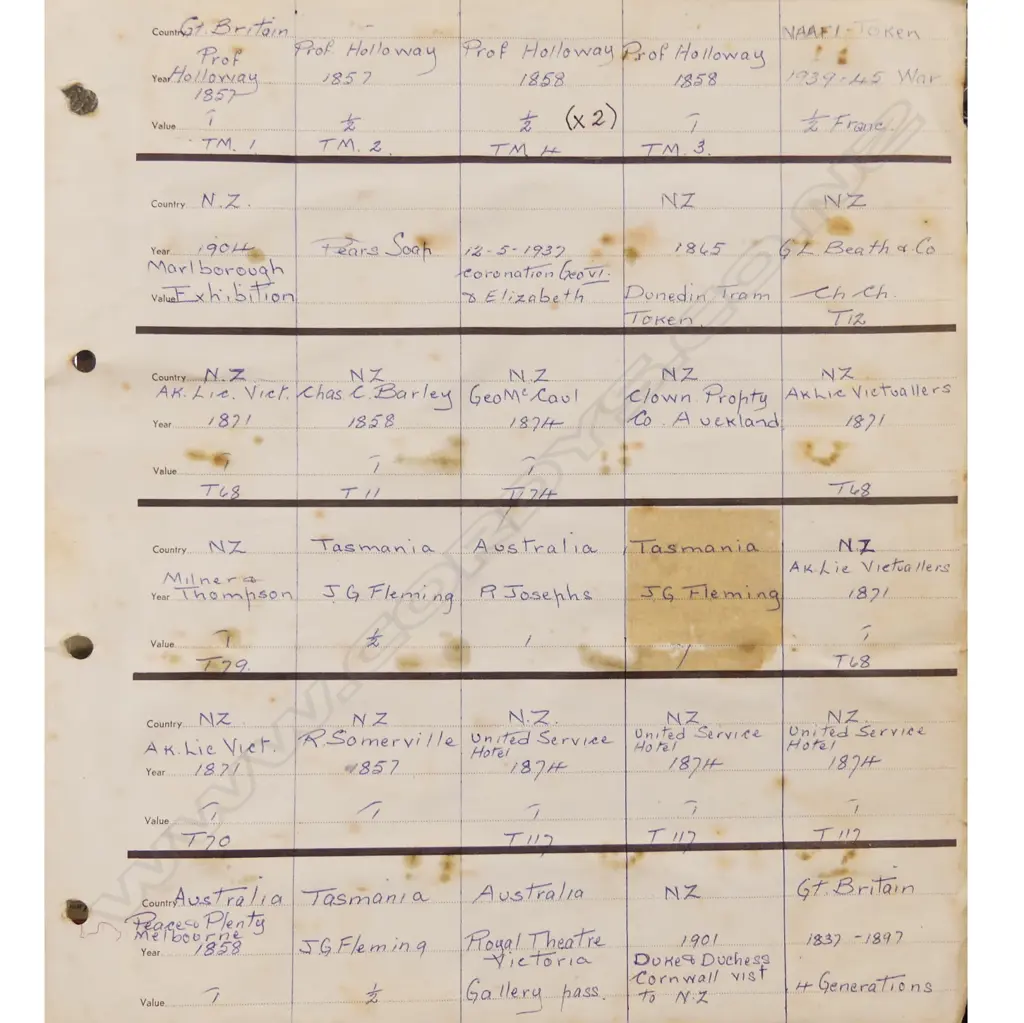 Country Gt. Britain NAAFI-Token
Prof Holloway Prof Holloway Prof Holloway Prof Holloway
Year 1857 1857 1858 1858 1939-45 War
Value 1 ½ ½ (x2) 1 ½ Franc.
TM. 1 TM. 2. TM. 4 TM. 3.
Country N.Z. NZ NZ
Year 1904 Pears Soap 12-5-1937 1865 G.L. Beath & Co
Marlborough coronation Geo VI.
Value Exhibition & Elizabeth Dunedin Tram Ch Ch.
Token. T12
Country N.Z NZ N.Z NZ NZ
Ak. Lic. Vict. Chas. C. Barley Geo McCaul Clown. Propty Ak Lic Victuallers
Year 1871 1858 1874 Co. Auckland 1871
Value 1 1 1
T68 T11 T74 T68
Country NZ Tasmania Australia Tasmania NZ
Milner & Ak. Lic Victuallers
Year Thompson J.G Fleming R Josephs J.G Fleming 1871
Value 1 ½ 1 1 1
T79. T68
Country NZ NZ N.Z. NZ NZ.
Ak. Lic Vict. R. Somerville United Service United Service United Service
Hotel Hotel Hotel
Year 1871 1857 1874 1874 1874
Value 1 1 1 1 1
T70 T117 T117 T117
Country Australia Tasmania Australia NZ Gt. Britain
Peace & Plenty
Melbourne
Year 1858 J.G Fleming Royal Theatre 1901 1837-1897
Victoria Duke & Duchess
Cornwall vist
Value 1 ½ Gallery pass. to N-Z 4 Generations
www.cordys.co.nz